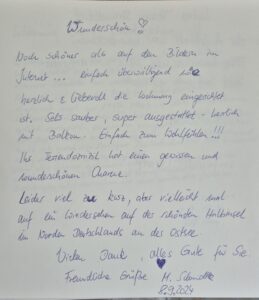 Wunderschön!
Noch schöner als auf den Bildern im
Internet... einfach überwältigend wie
herzlich & liebevoll die Wohnung eingerichtet
ist. Sehr sauber, super ausgestattet - herrlich
mit Balkon. Einfach zum Wohlfühlen!!!
Ihr hat einen gewissen und
wunderschönen Charme.
Leider viel zu kurz, aber vielleicht mal
auf ein Wiedersehen auf der schönsten Halbinsel
im Norden Deutschlands an der Ostsee.
Vielen Dank, alles Gute für Sie.
Freundliche Grüße M.
8.9.2024